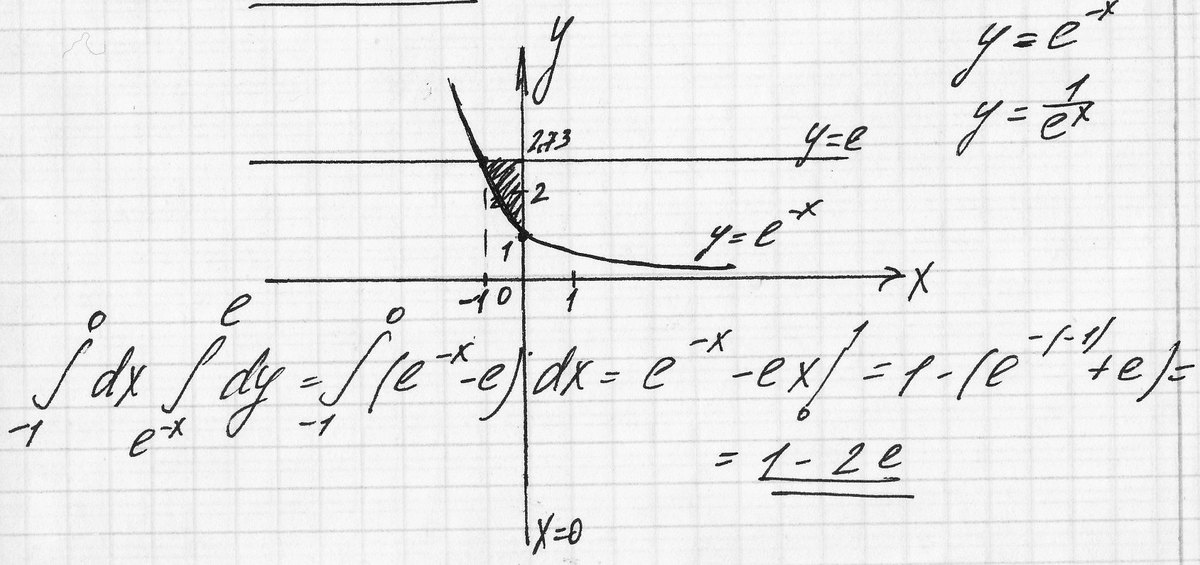 y
y = e^{-x}
y = \frac{1}{e^x}
2,73
y = e
2
y = e^{-x}
1
-1 0 1 x
\int_{-1}^{0} dx \int_{e^{-x}}^{e} dy = \int_{-1}^{0} (e^{-x} - e) dx = e^{-x} - ex \Big/_{0}^{1} = 1 - (e^{-(-1)} + e) =
= 1 - 2e
x=0